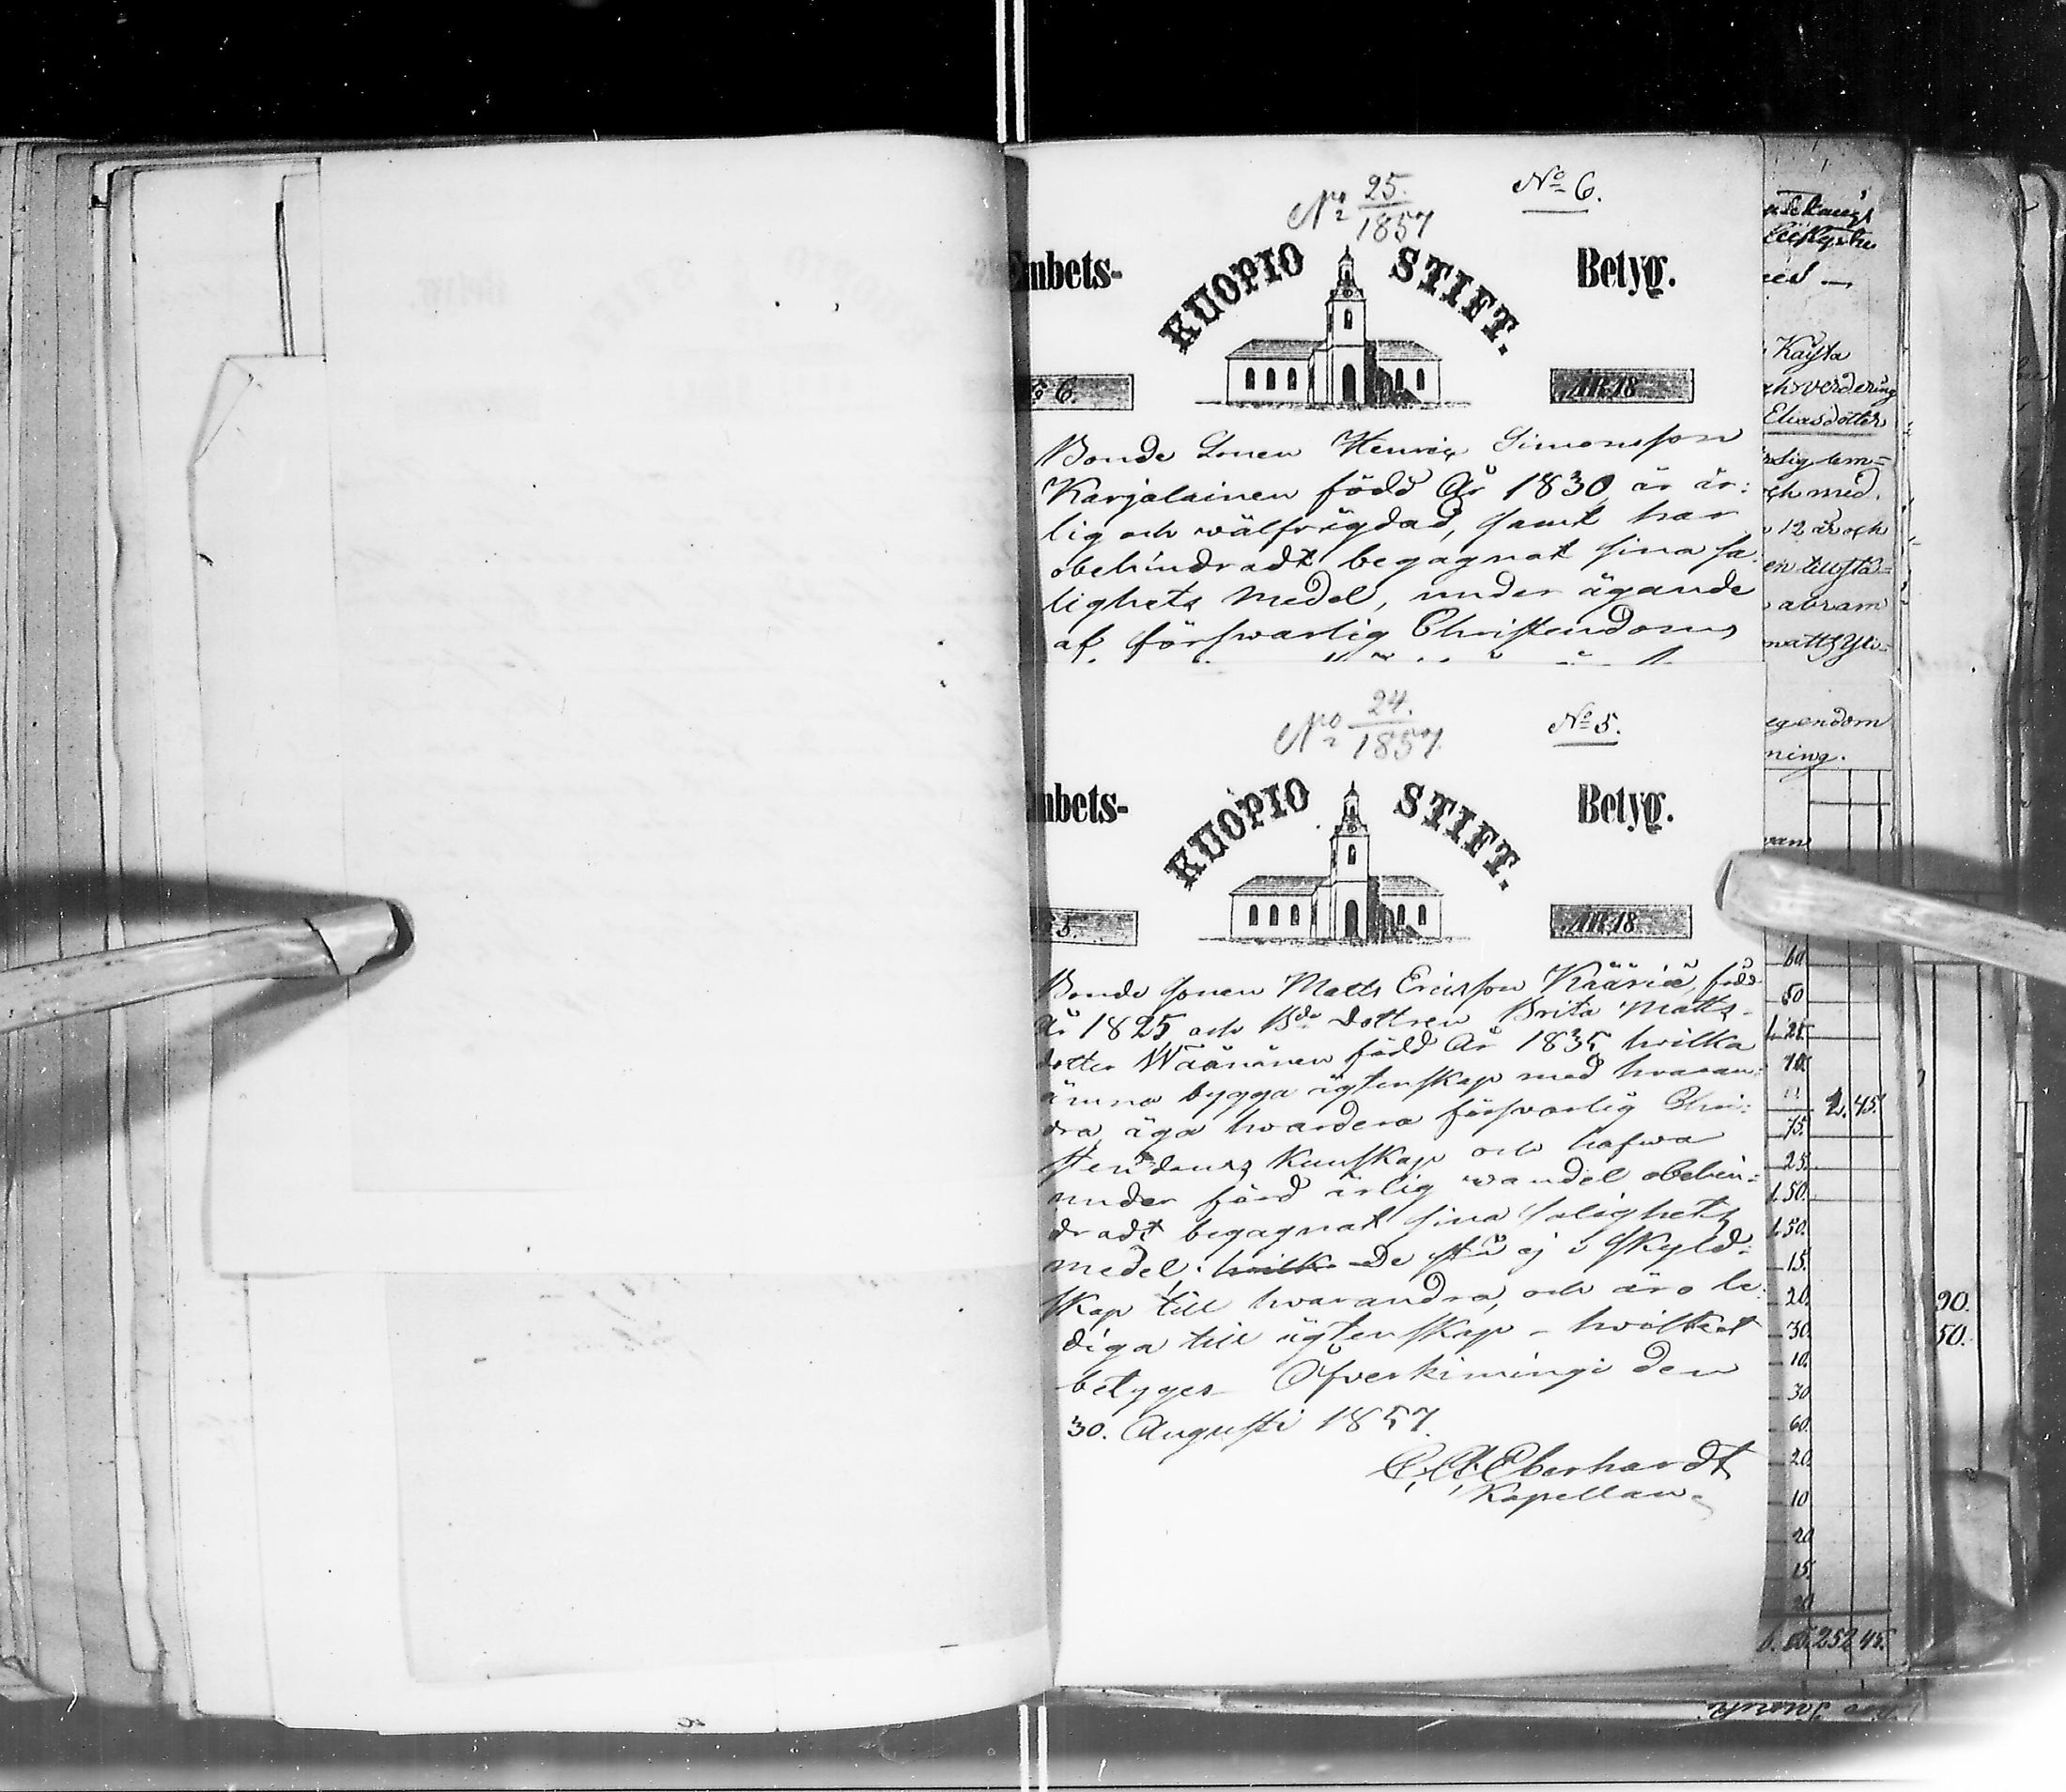 No 25./1857 No 6.
Embets- KUOPIO STIFT. Betyg.
No 6. ÅR 18
Bonde Sonen Henric Simonsson
Karjalainen född År 1830, är är:
lig och wälfrägdad, samt har
obehindradt begagnat sina sa
lighets medel, under ägande
af förswarlig Christendoms
No 24./1857 No 5.
Embets- KUOPIO STIFT. Betyg.
5. ÅR 18
Bonde sonen Matts Ericsson Kääriä, född
År 1825 och Bde dottren Brita Matts-
dotter Wäänänen född År 1835, hvilka
ämna bygga ägtenskap med hvaran:
dra, äga hvardera försvarlig Chri:
stendoms Kunskap och hafwa
under förd ärlig wandel obehin:
dradt begagnat sina salighets
medel; hvilk De stå ej i skyld:
skap till hvarandra, och äro le:
diga till ägtenskap - hvilket
betyges Öfverkiminge den
30. Augusti 1857.
C. A. Eberhardt
Kapellan.
Kaysta
Eliasdotter
12 år och
abram
egendom
ning.
60
50
25
10
2. 45.
75.
25.
50.
50.
15.
20.
30.
10.
30
60.
20
10
20
15.
20
252 45.
90.
50.